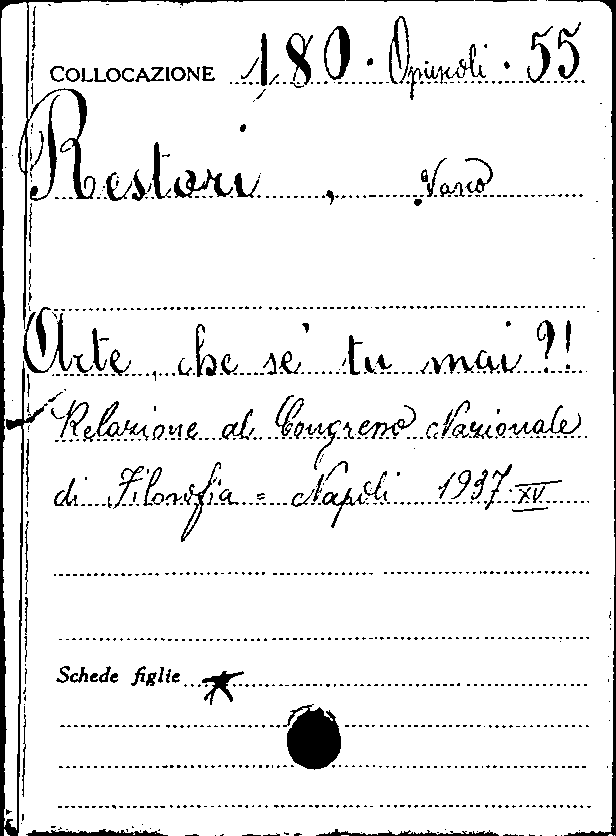 COLLOCAZIONE 180 · Opuscoli · 55
Restori , Vasco
Arte, che se' tu mai ?!
Relazione al Congresso Nazionale
di Filosofia = Napoli 1937·XV
Schede figlie